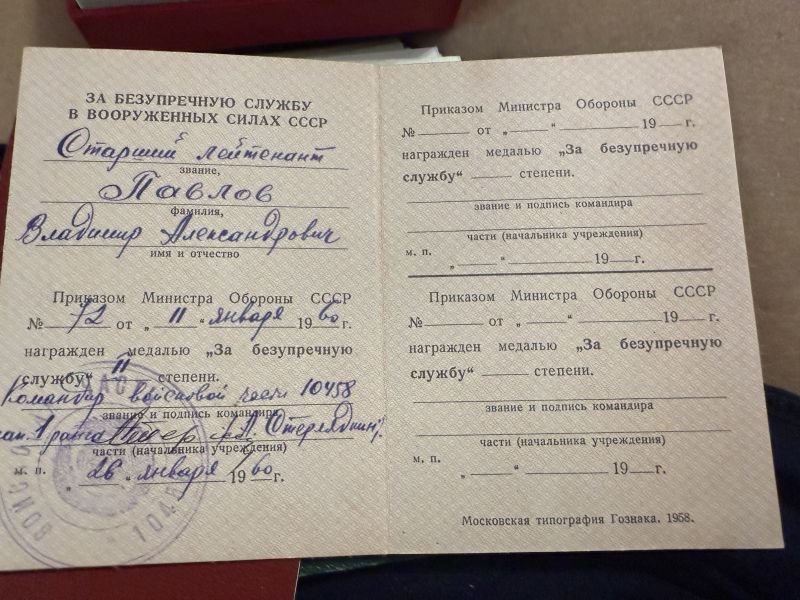 ЗА БЕЗУПРЕЧНУЮ СЛУЖБУ
В ВООРУЖЕННЫХ СИЛАХ СССР
Старший лейтенант
звание,
Павлов
фамилия,
Владимир Александрович
имя и отчество
Приказом Министра Обороны СССР
№ 72 от „ 11 “ января 1960 г.
награжден медалью „За безупречную
службу“ II степени.
Командир войсковой части 10458
звание и подпись командира
кап. 1 ранга
части (начальника учреждения)
м. п. „ 26 “ января 1960 г.
Приказом Министра Обороны СССР
№ от „ “ 19 г.
награжден медалью „За безупречную
службу“ степени.
звание и подпись командира
части (начальника учреждения)
м. п. „ “ 19 г.
Приказом Министра Обороны СССР
№ от „ “ 19 г.
награжден медалью „За безупречную
службу“ степени.
звание и подпись командира
части (начальника учреждения)
м. п. „ “ 19 г.
Московская типография Гознака. 1958.